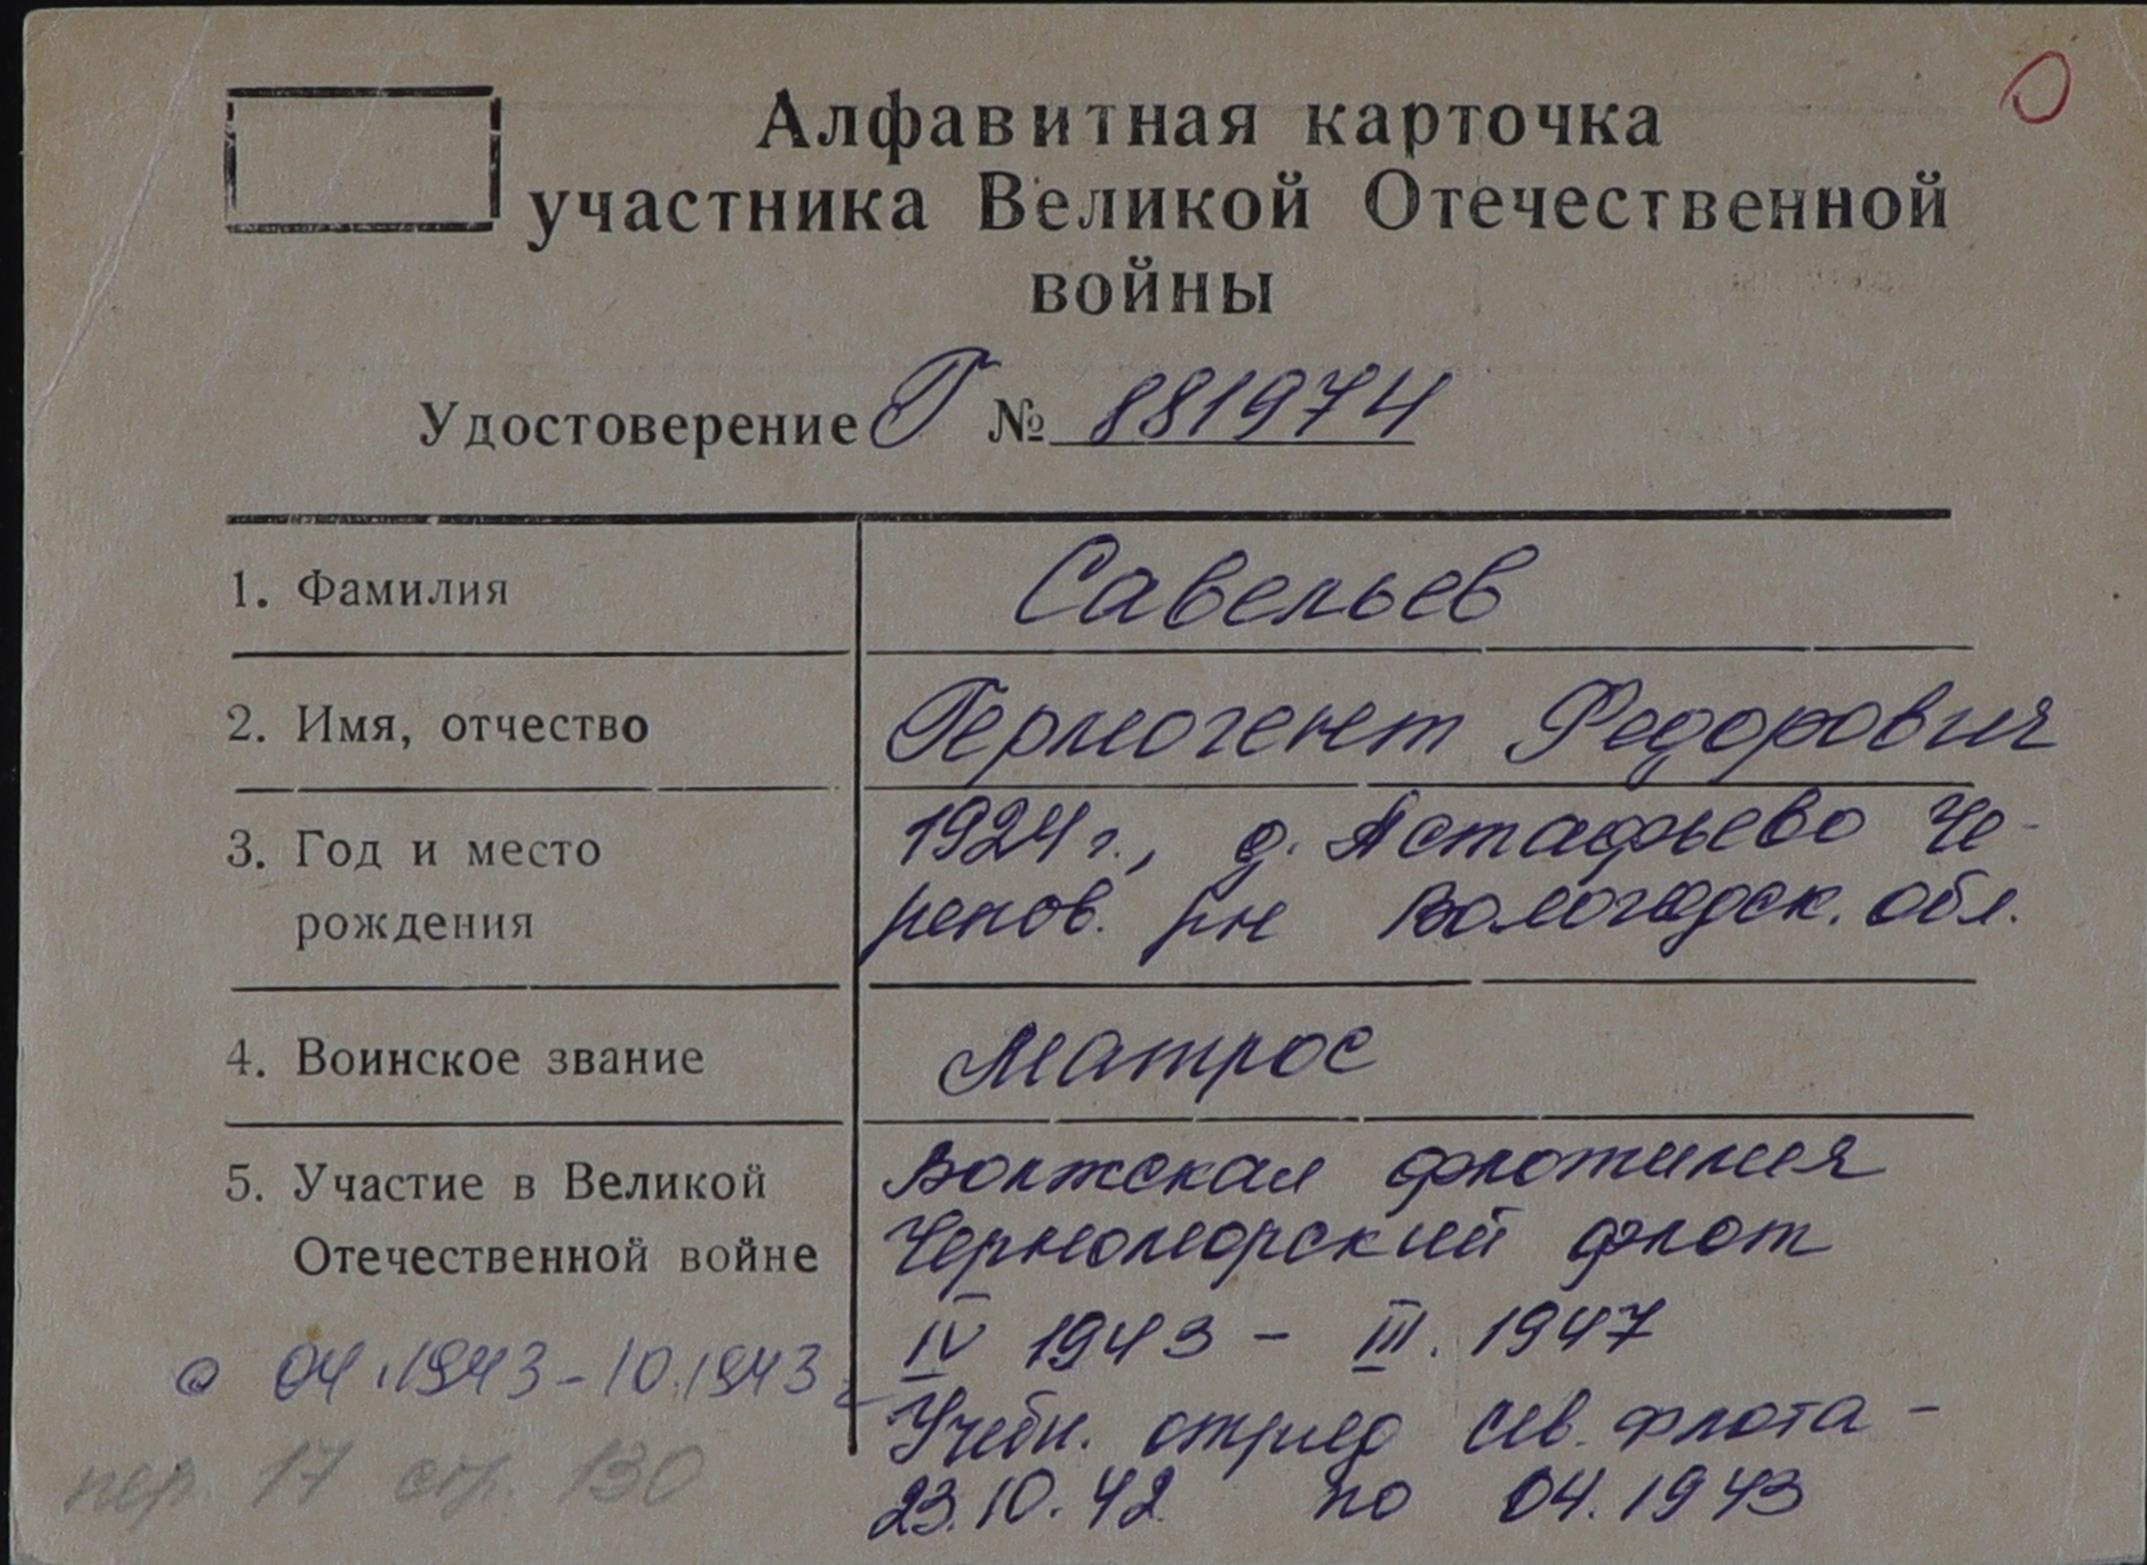 Алфавитная карточка
участника Великой Отечественной
войны
Удостоверение Г № 881974
1. Фамилия
Савельев
2. Имя, отчество
Гермогент Федорович
3. Год и место
рождения
1924 г., д. Астафьево Че-
репов. р-н Вологодск. обл.
4. Воинское звание
Матрос
5. Участие в Великой
Отечественной войне
Волжская флотилия
Черноморский флот
IV 1943 - III. 1947
Учебн. отряд Сев. флота -
23.10.42 по 04.1943
с 04.1943-10.1943
пер. 17 стр. 130